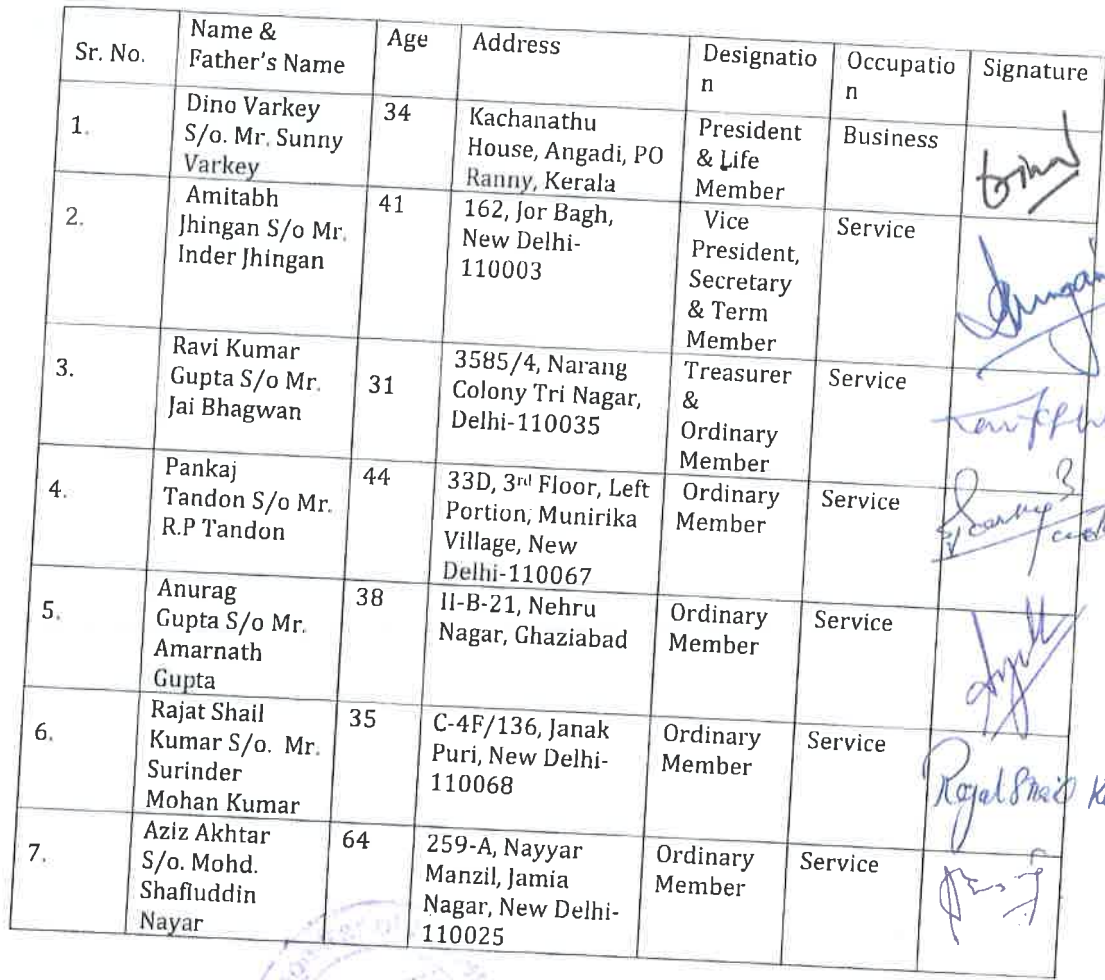 Sr. No. Name & Father's Name Age Address Designatio n Occupatio n Signature
1. Dino Varkey S/o. Mr. Sunny Varkey 34 Kachanathu House, Angadi, PO Ranny, Kerala President & Life Member Business
2. Amitabh Jhingan S/o Mr. Inder Jhingan 41 162, Jor Bagh, New Delhi- 110003 Vice President, Secretary & Term Member Service
3. Ravi Kumar Gupta S/o Mr. Jai Bhagwan 31 3585/4, Narang Colony Tri Nagar, Delhi-110035 Treasurer & Ordinary Member Service
4. Pankaj Tandon S/o Mr. R.P Tandon 44 33D, 3rd Floor, Left Portion, Munirika Village, New Delhi-110067 Ordinary Member Service
5. Anurag Gupta S/o Mr. Amarnath Gupta 38 II-B-21, Nehru Nagar, Ghaziabad Ordinary Member Service
6. Rajat Shail Kumar S/o. Mr. Surinder Mohan Kumar 35 C-4F/136, Janak Puri, New Delhi- 110068 Ordinary Member Service
7. Aziz Akhtar S/o. Mohd. Shafluddin Nayar 64 259-A, Nayyar Manzil, Jamia Nagar, New Delhi- 110025 Ordinary Member Service